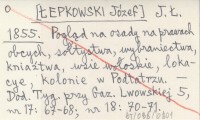 [ŁEPKOWSKI Józef] J. Ł.
1855. Pogląd na osady na prawach
obcych, sołtystwa, wybraniectwa,
kniaztwa, wsie wołoskie, loka-
cye, kolonie w Podtatrzu. —
Dod. Tyg. przy Gaz. Lwowskiej 5,
nr 17: 67-68; nr 18: 70-71.